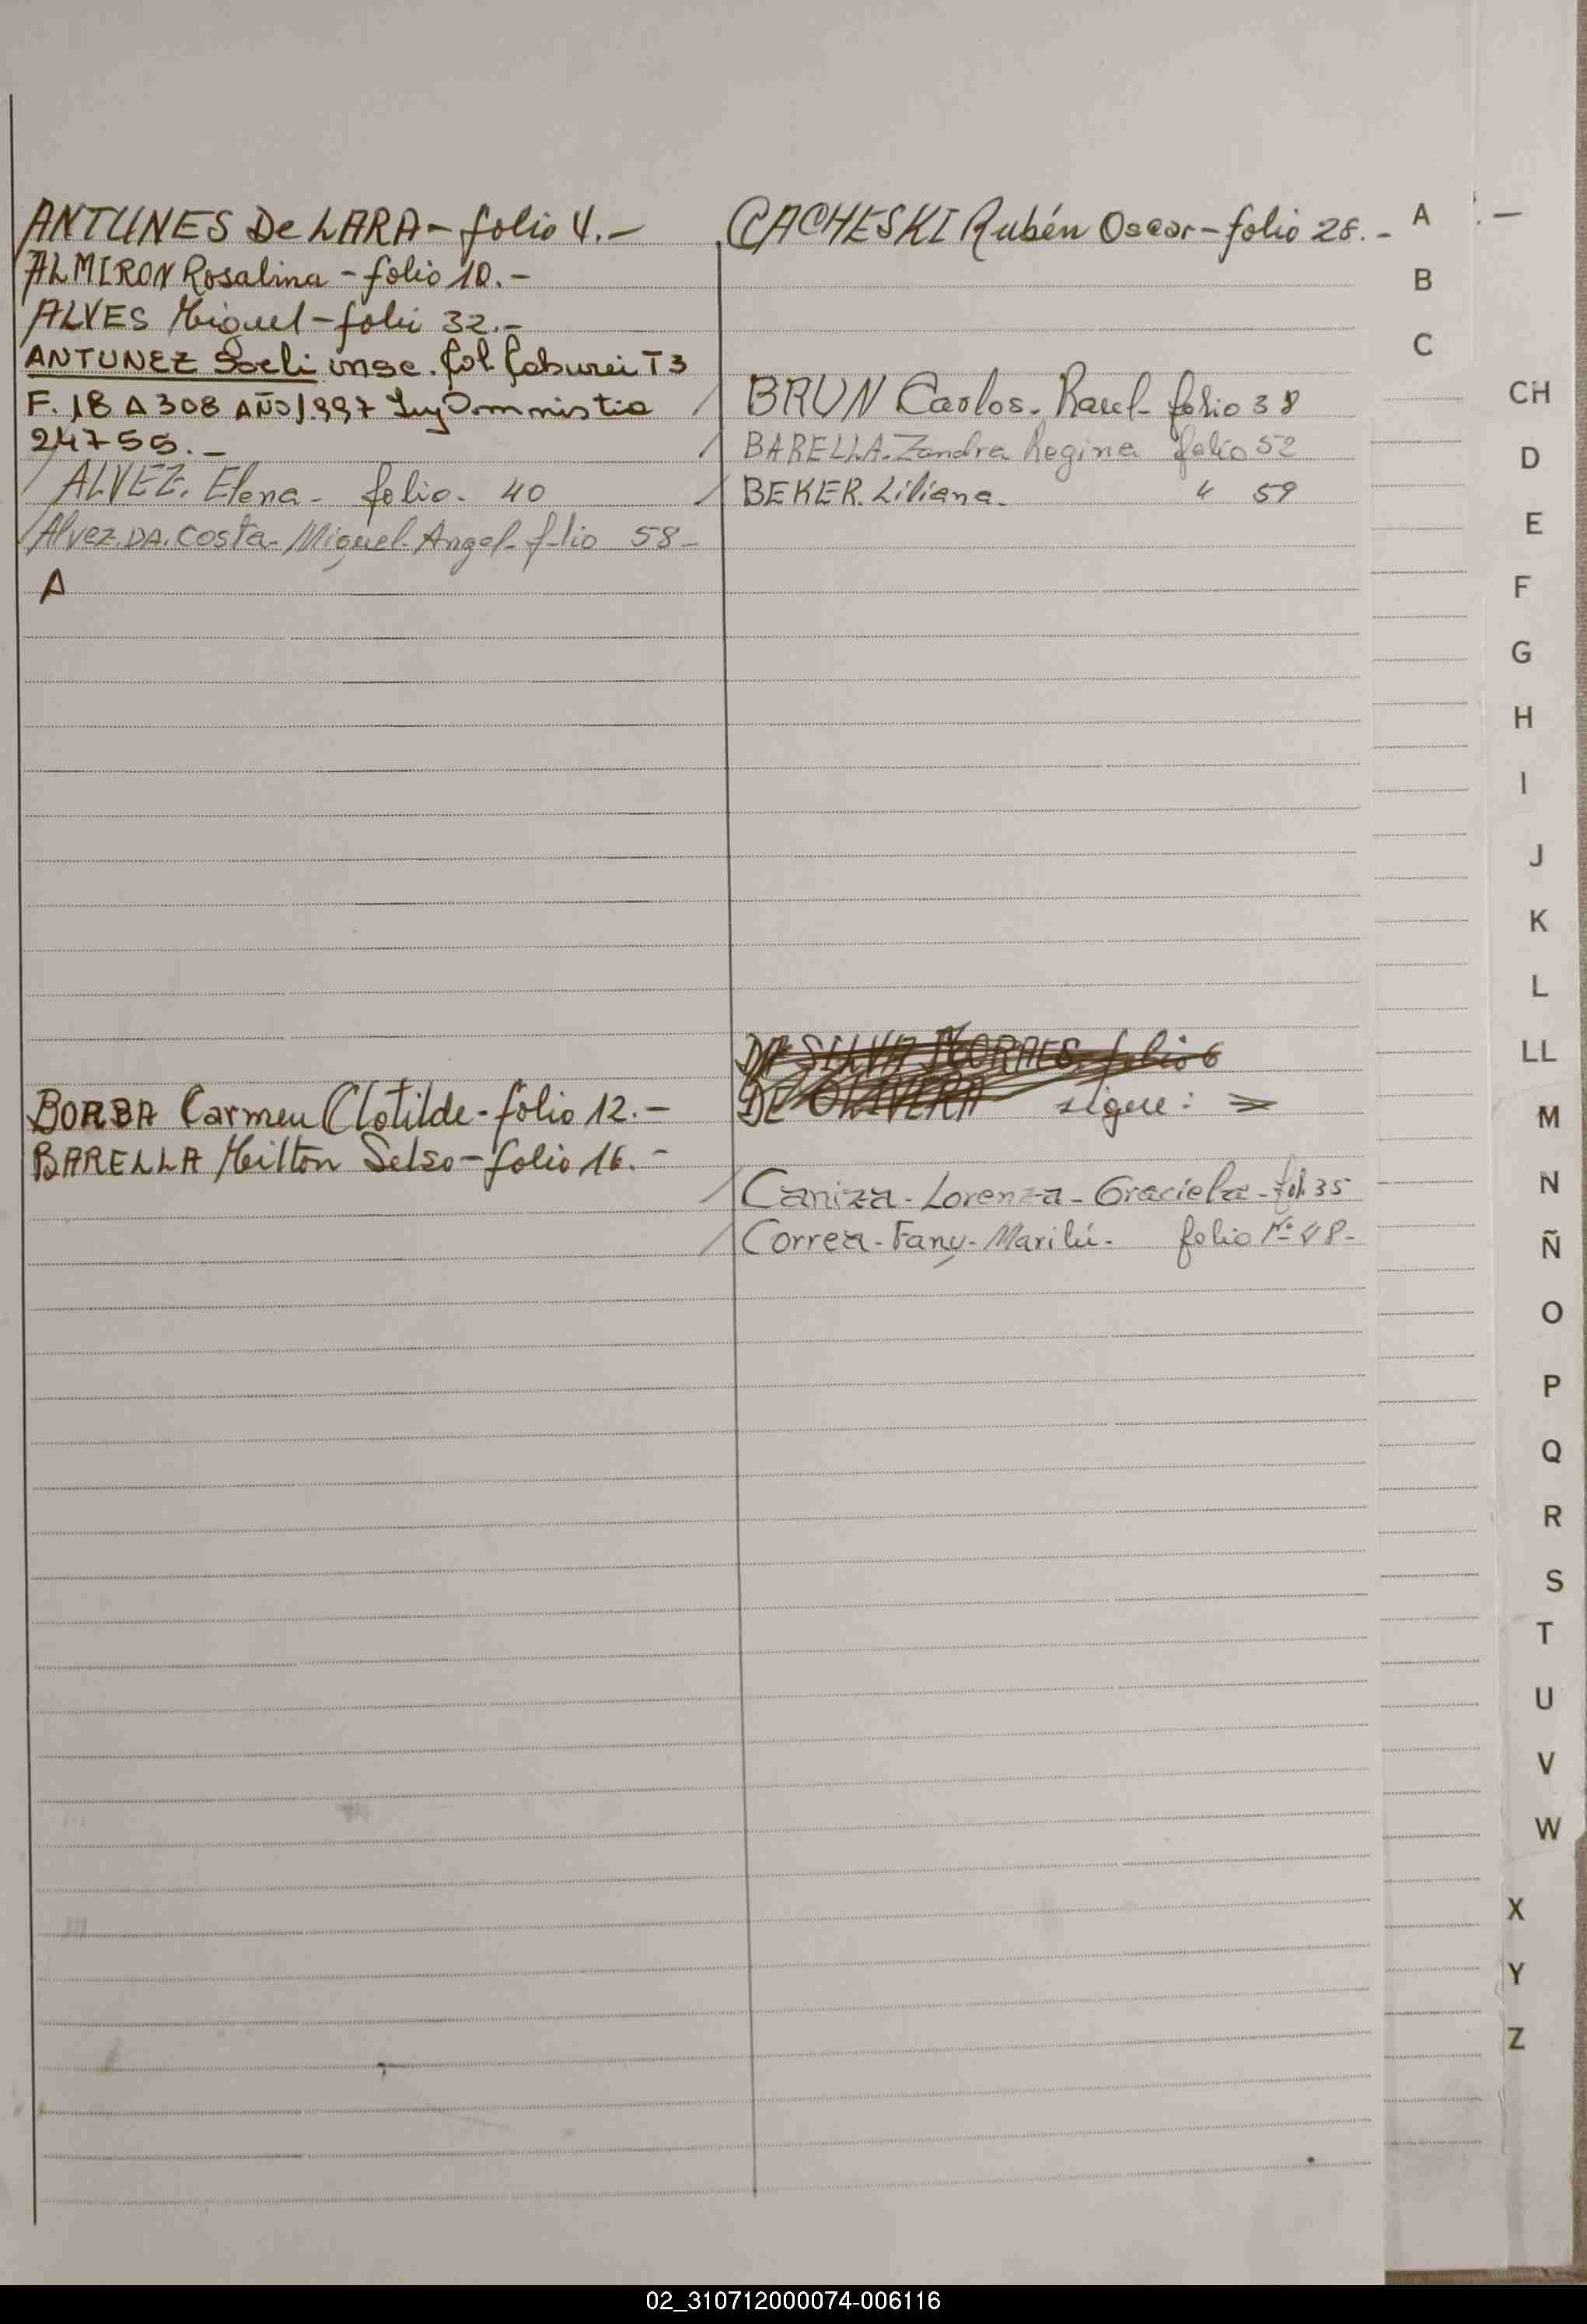 ANTUNES De LARA - folio 4.-
ALMIRON Rosalina - folio 10.-
ALVES Miguel - folio 32.-
ANTUNEZ Soeli insc. fol T3
F. 18 A 308 AÑO 1.997 Ley Ammnistia
24755.-
ALVEZ. Elena - folio. 40
Alvez. DA. Costa - Miguel - Angel - folio 58 -
A
BORBA Carmen Clotilde - folio 12.-
BARELLA Milton Selso - folio 16.-
CACHESKI Rubén Oscar - folio 28.-
BRUN Carlos. Raul - folio 38
BARELLA. Zandra Regina folio 52
BEKER. Liliana. " 59
DA SILVA MORAES folio 6
DE OLIVERA sigue: =>
Caniza - Lorenza - Graciela - fol. 35
Correa - Fany - Marilú - folio Nº 48 -
A
B
C
CH
D
E
F
G
H
I
J
K
L
LL
M
N
Ñ
O
P
Q
R
S
T
U
V
W
X
Y
Z
02_310712000074-006116